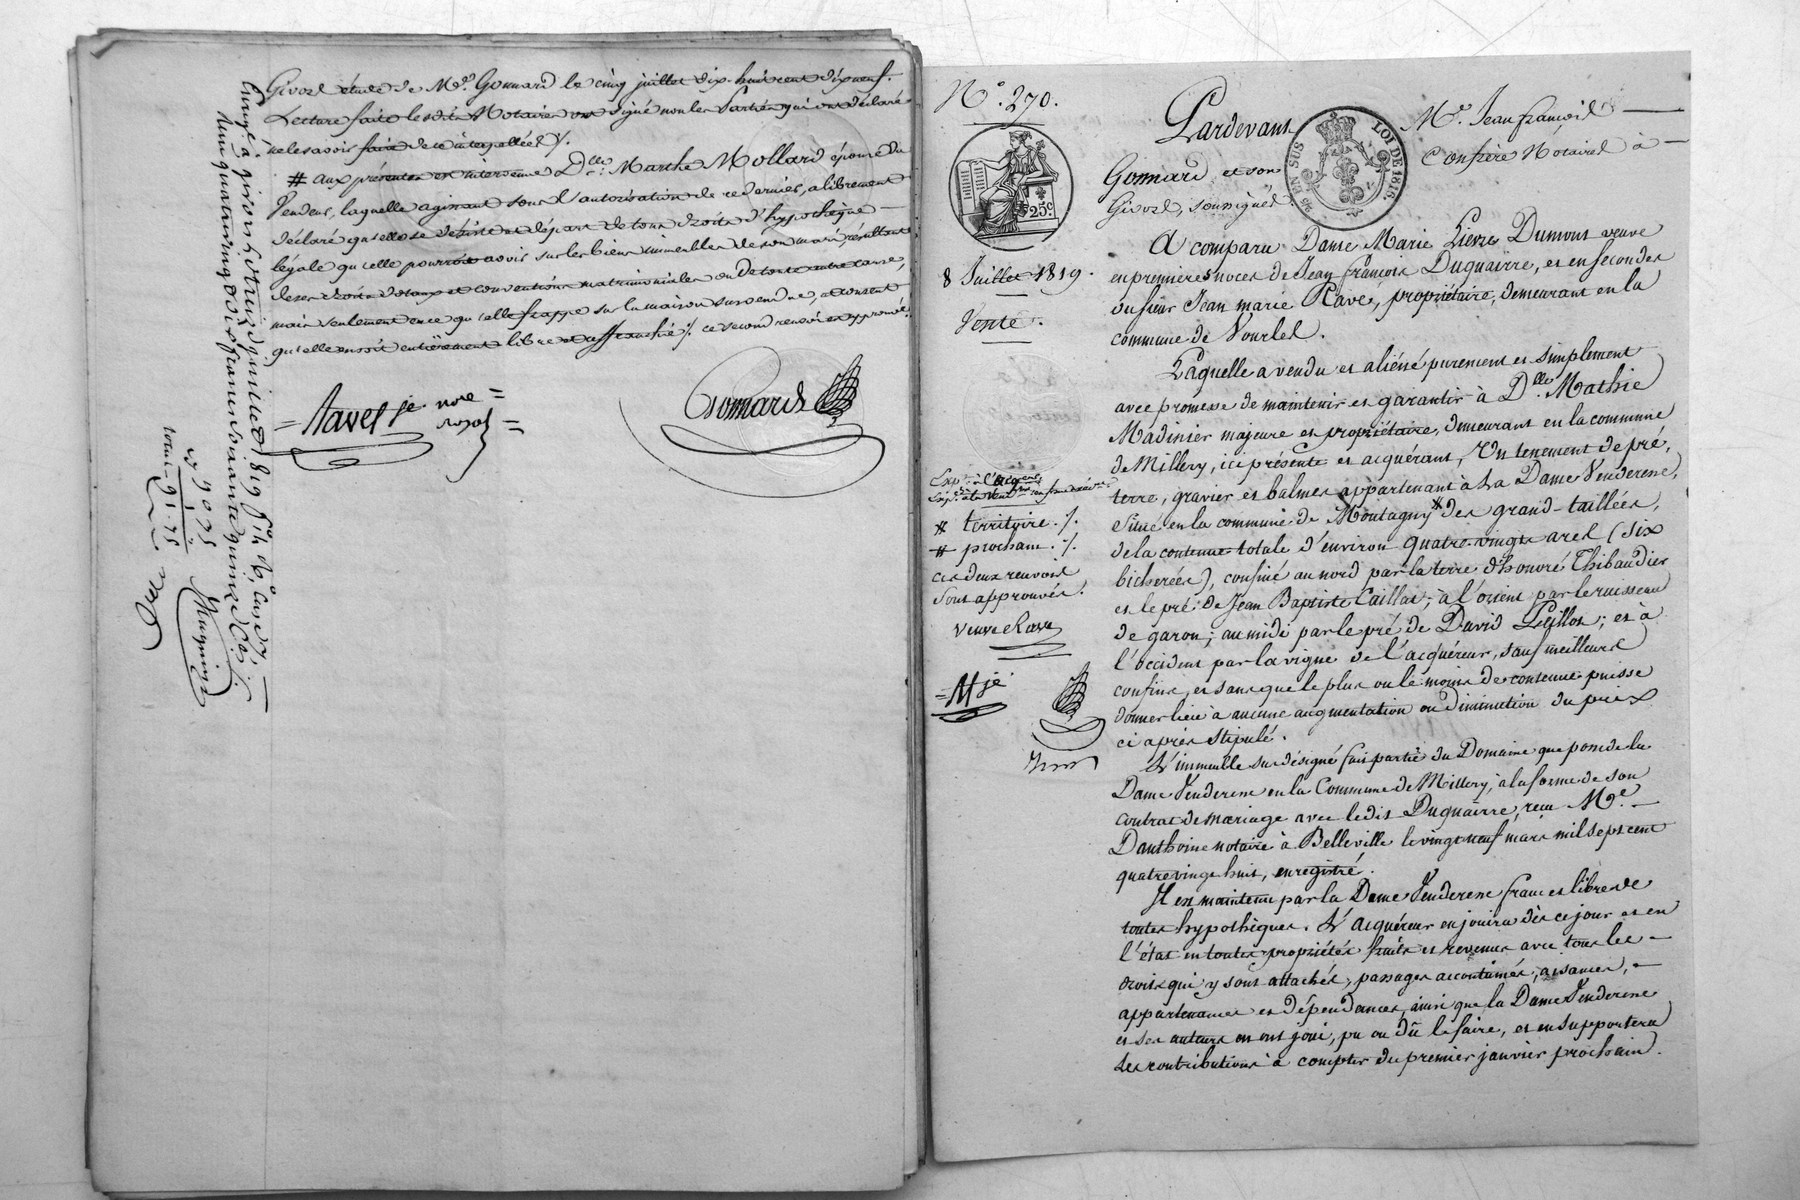 Givors étude de Me. Gonnard le cinq juillet dix-huit cent dix neuf.
Lecture faite lesdits Notaires ont signé non les Parties qui ont déclaré
ne le savoir faire de ce interpellées ./.
# aux présentes est intervenue Dlle. Marthe Mollard épouse du
Vendeur, laquelle agissant sous l'autorisation de ce dernier, a librement
déclaré qu'elle se désiste et départ de tous droits d'hypothèque
légale qu'elle pourroit avoir sur les biens immeubles de son mari, résultant
de ses droits dotaux et conventions matrimoniales ou de toute autre cause,
mais seulement en ce qu'elle frappe sur la maison survendue, et consent
qu'elle en soit entièrement libre et affranchie ./. ce second renvoi est approuvé.
= Navel je nore =
royal =
Gonnard
Enregé. à givors le huit juillet 1819 fo.
reçu quatre vingt dix francs soixante quinze c.
N°. 270.
25c
8 Juillet 1819.
Vente.
Pardevant Me. Jean françois
Gonnard et son Confrère Notaires à
Givors, soussignés
LOI DE 1816.
EN SUS
A comparu Dame Marie Pierre Dumont veuve
en premières noces de Jean françois Duquairre, et en secondes
du sieur Jean marie Ravé, propriétaire, demeurant en la
commune de Vourles.
Laquelle a vendu et aliéné purement et simplement
avec promesse de maintenir et garantir à Dlle. Mathie
Madinier majeure et propriétaire, demeurant en la commune
de Millery, ici présente et acquérant, Un tenement de pré,
terre, gravier et balmes appartenant à la Dame Venderesse,
Situé en la commune de Montagny # des grand-taillées,
de la contenue totale d'environ quatre-vingts ares (six
bicherées), confiné au nord par la terre d'honoré Thibaudier
et le pré de Jean Baptiste Caillat; à l'orient par le ruisseau
de garon; au midi par le pré de David Peillon; et à
l'occident par la vigne de l'acquéreur, sauf meilleurs
confins, et sans que le plus ou le moins de contenue puisse
donner lieu à aucune augmentation ou diminution du prix
ci après stipulé.
L'immeuble susdésigné fait partie du Domaine que possède la
Dame Venderesse en la Commune de Millery, à la forme de son
contrat de mariage avec ledit Duquairre, reçu Me.
Danthoine notaire à Belleville le vingt neuf mars mil sept cent
quatre vingt huit, enregistré.
Il est maintenu par la Dame Venderesse franc et libre de
toutes hypothèques. L'acquéreur en jouira dès ce jour et en
l'état en toutes propriétés fruits et revenus avec tous les
droits qui y sont attachés, passages accoutumés, aisances,
appartenances et dépendances, ainsi que la Dame Venderesse
et ses auteurs en ont joui, pu ou dû le faire, et en supportera
les contributions à compter du premier janvier prochain.
# territoire ./.
# prochain ./.
ces deux renvois
sont approuvés.
veuve Rave